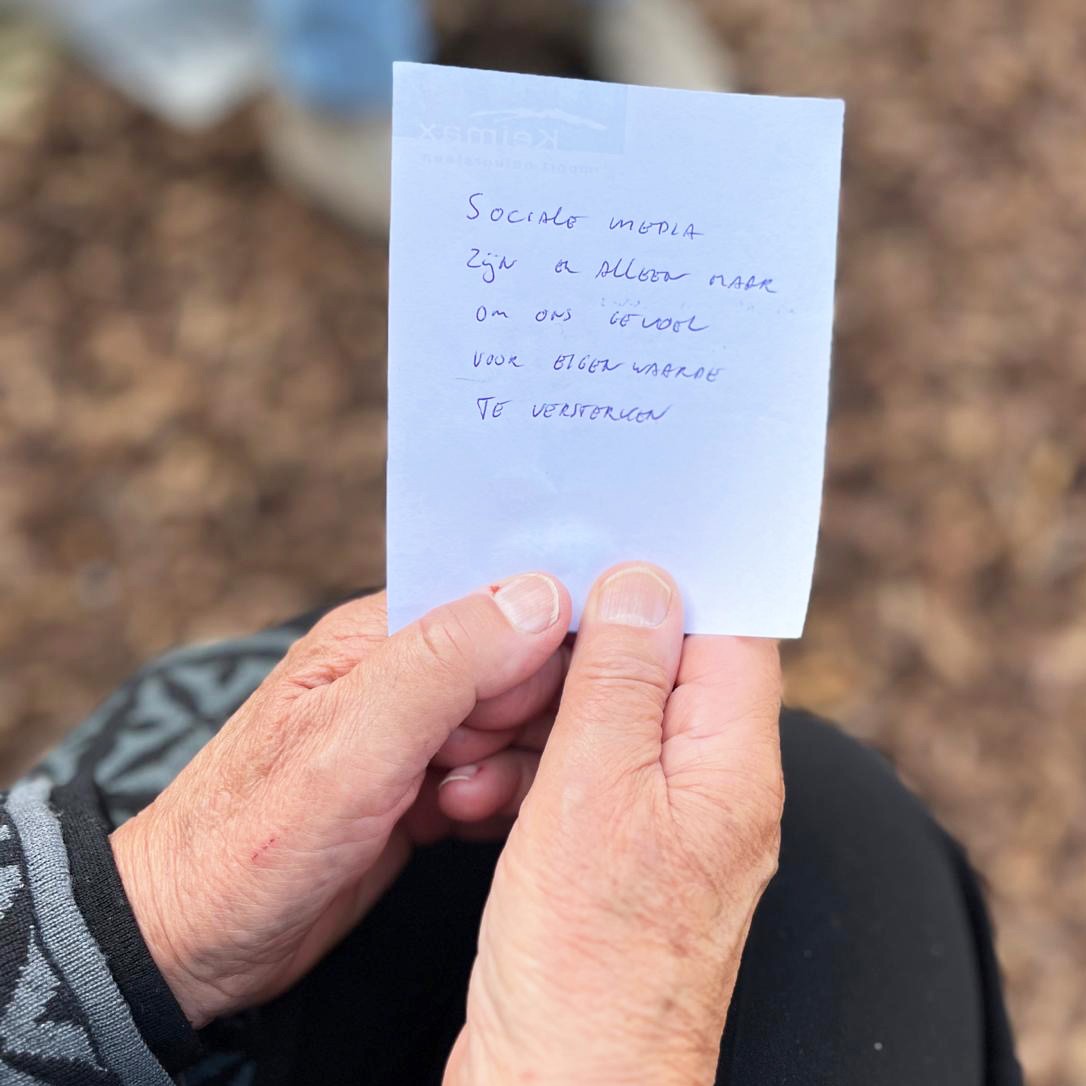 Keimax
Sociale media
zijn er alleen maar
om ons gevoel
voor eigenwaarde
te versterken